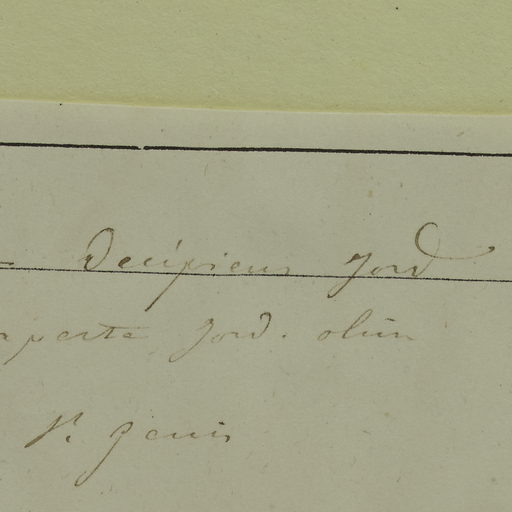 Decipiens Jord
Jord. olim
St. Genis